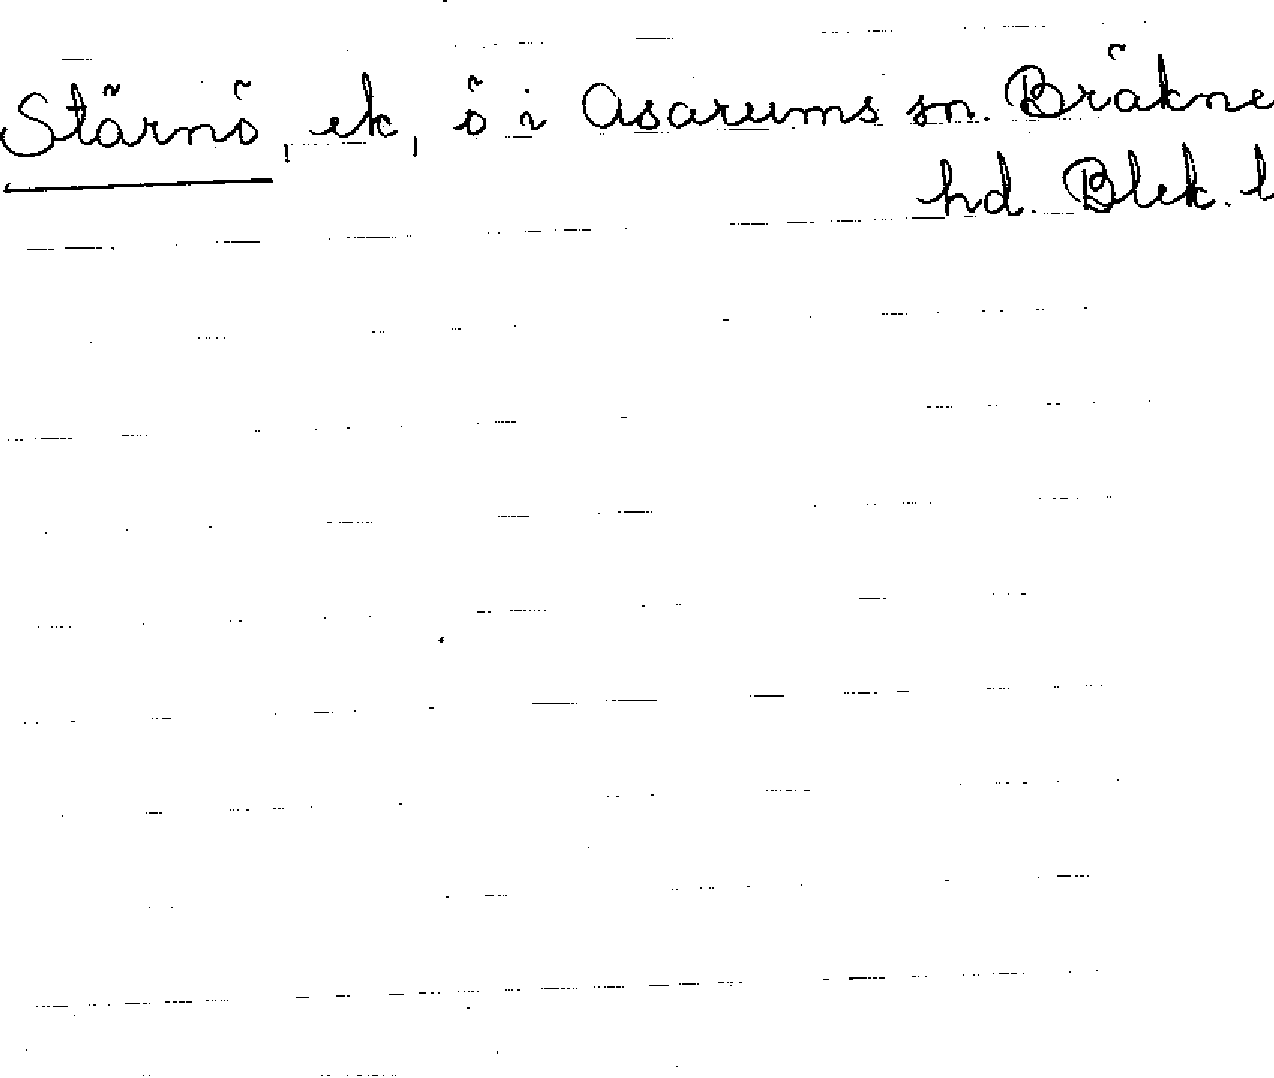 Stärnö, ek, ö i Asarums sn. Bräkne
hd. Blek. l